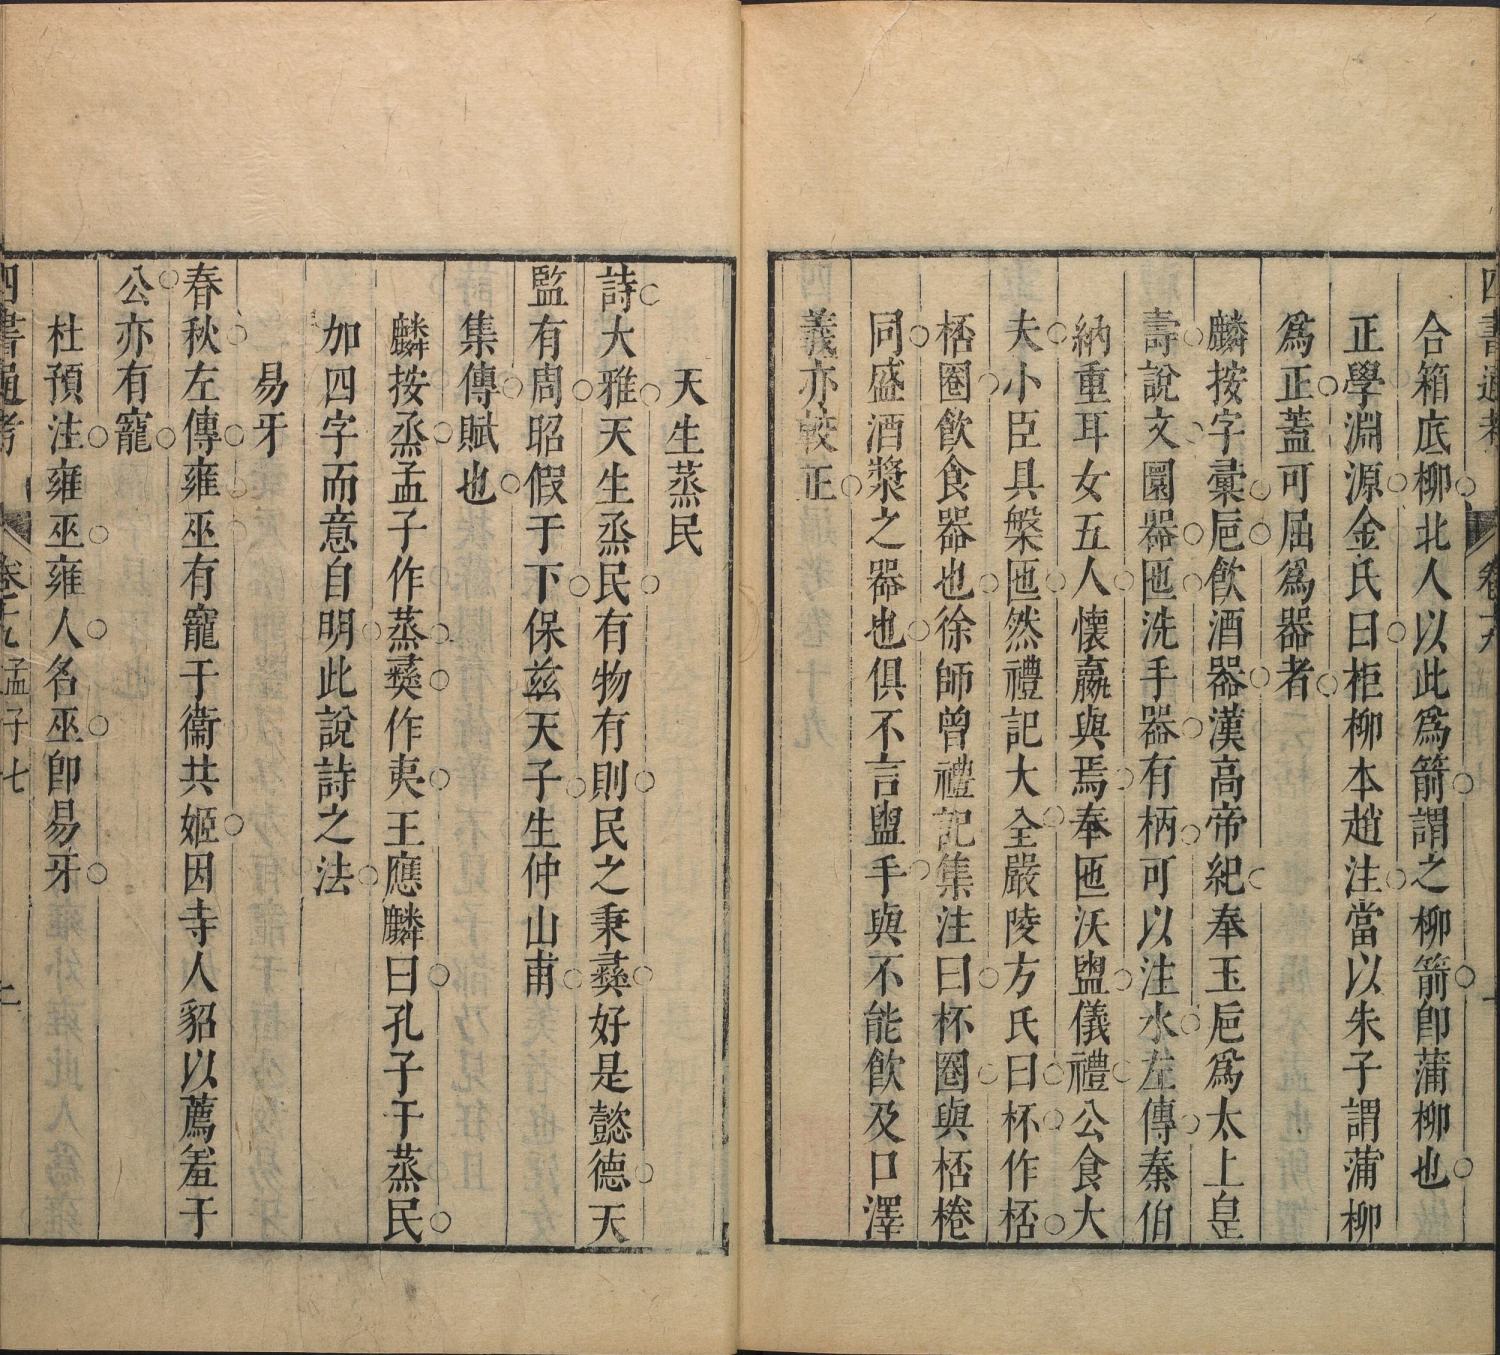 四書通考
卷十九
合箱底柳北人以此爲箭謂之柳箭卽蒲柳也
正學淵源金氏曰柜柳本趙注當以朱子謂蒲柳
爲正蓋可屈爲器者
麟按字彙巵飮酒器漢高帝紀奉玉巵爲太上皇
壽說文圜器匜洗手器有柄可以注水左傳秦伯
納重耳女五人懷嬴與焉奉匜沃盥儀禮公食大
夫小臣具槃匜然禮記大全嚴陵方氏曰杯作桮
桮圈飮食器也徐師曾禮記集注曰杯圈與桮棬
同盛酒漿之器也俱不言盥手與不能飮及口澤
義亦較正
天生蒸民
詩大雅天生烝民有物有則民之秉彝好是懿德天
監有周昭假于下保兹天子生仲山甫
集傳賦也
麟按烝孟子作蒸彝作夷王應麟曰孔子于蒸民
加四字而意自明此說詩之法
易牙
春秋左傳雍巫有寵于衞共姬因寺人貂以薦羞于
公亦有寵
杜預注雍巫雍人名巫卽易牙
四書通考
卷十九
孟子七
二